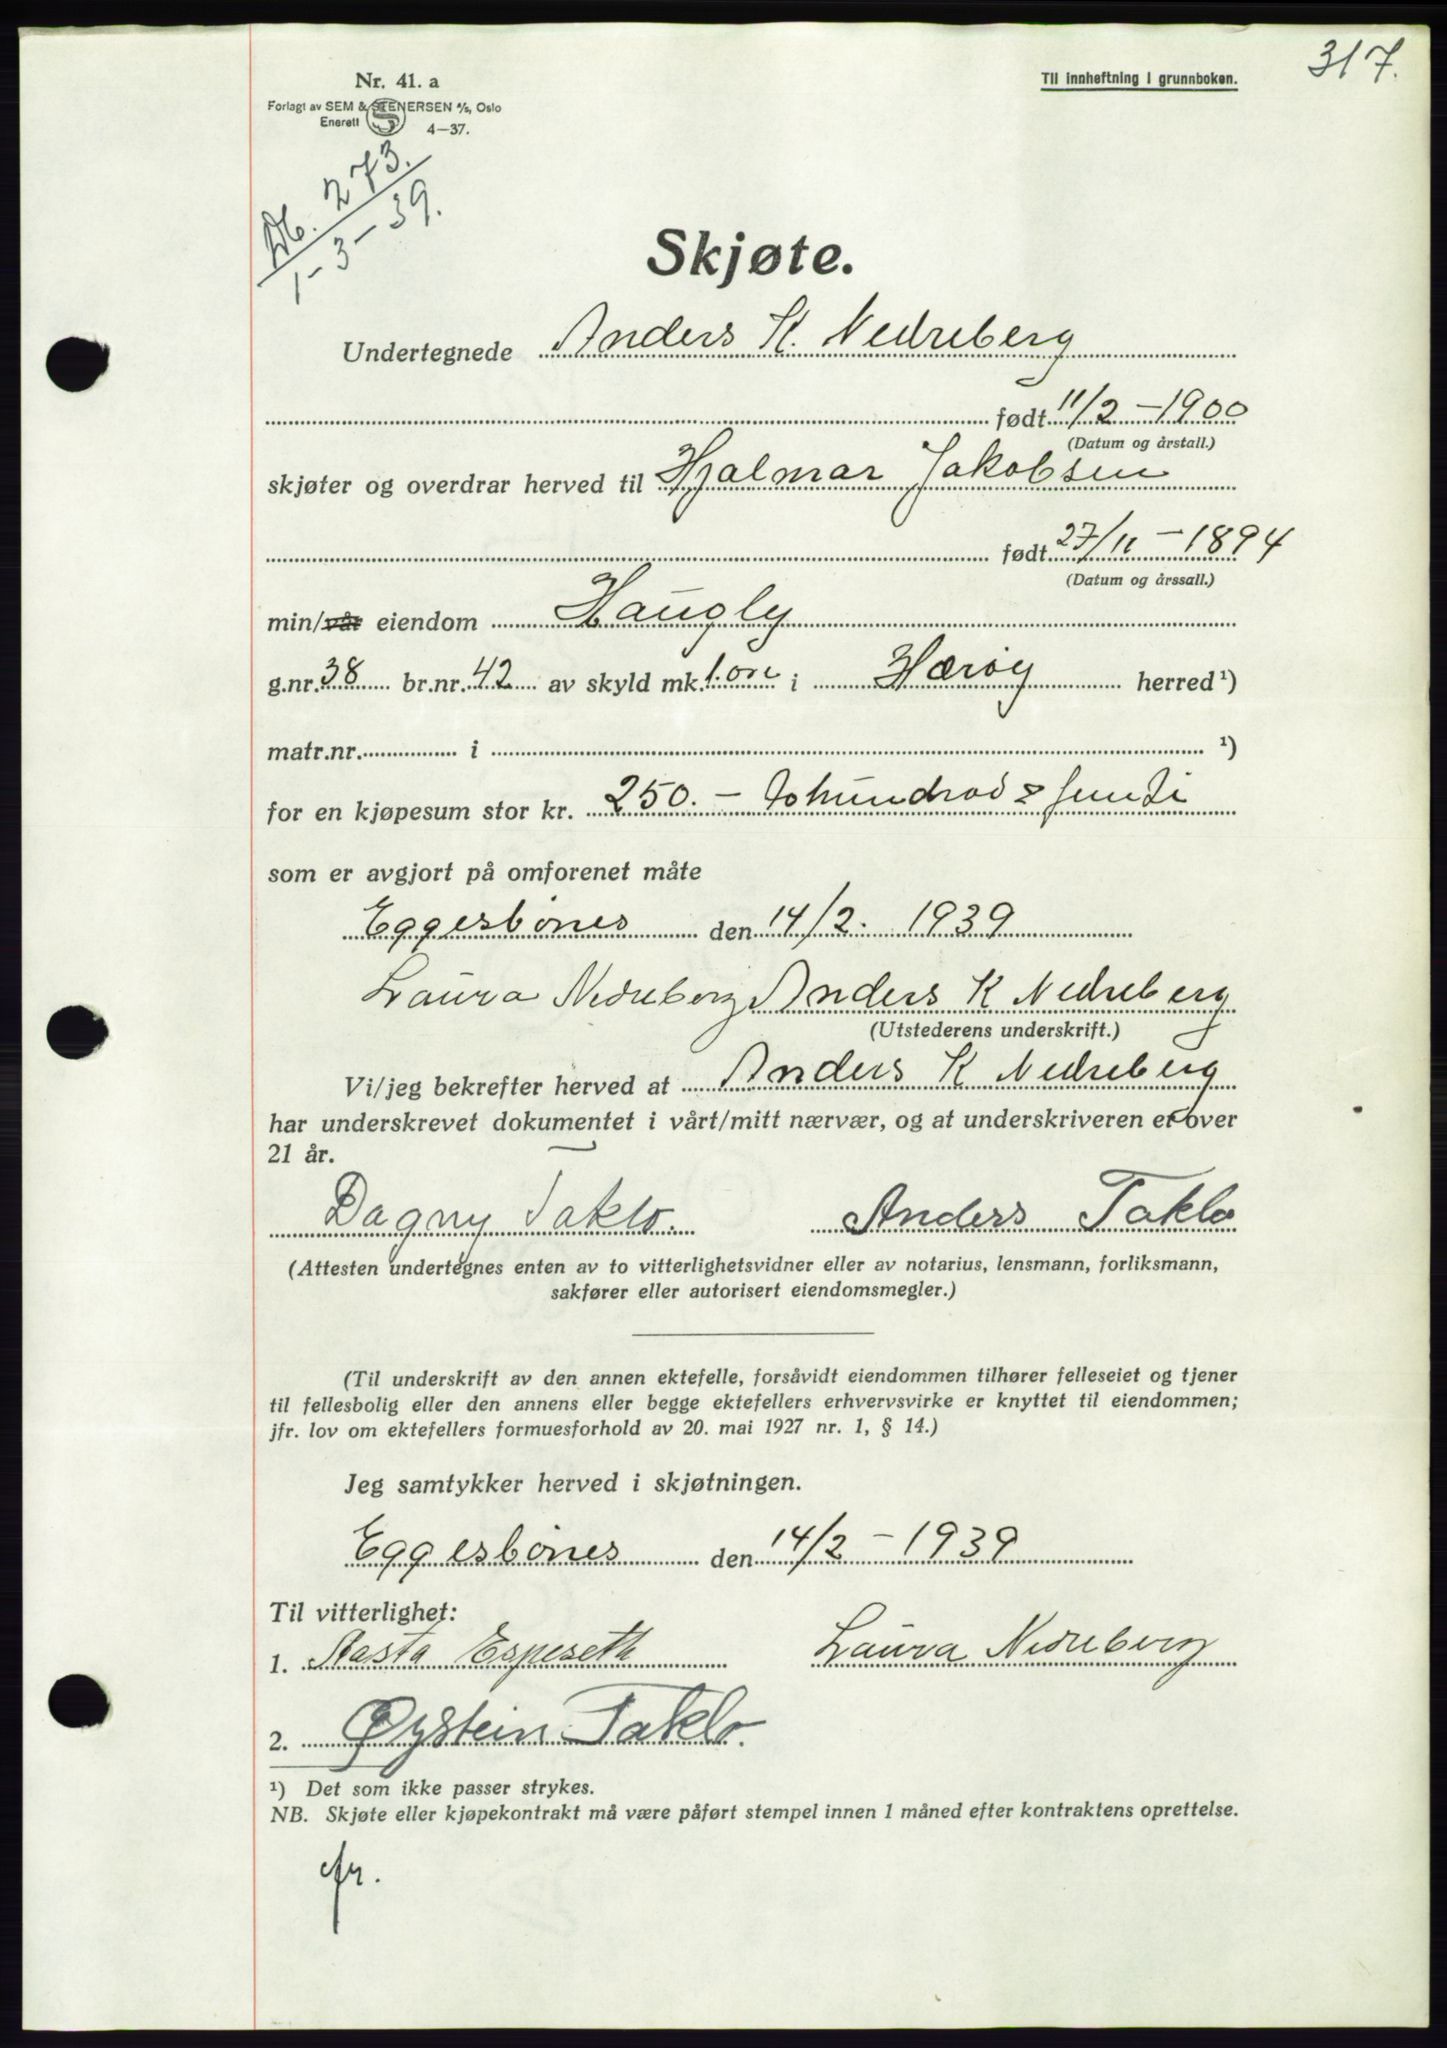 317.
Nr. 41. a
Til innheftning i grunnboken.
Forlagt av SEM & STENERSEN A/S, Oslo
Enerett
4—37.
Db. 273.
1-3-39.
Skjøte.
Undertegnede Anders K. Nedreberg
født 11/2 - 1900
(Datum og årstall.)
skjøter og overdrar herved til Hjalmar Jakobsen
født 27/11 - 1894
(Datum og årssall.)
min/vår eiendom Haugly
g.nr. 38 br.nr. 42 av skyld mk. 1. øre i Herøy herred ¹)
matr.nr. i ¹)
for en kjøpesum stor kr. 250. - tohundrod & femti
som er avgjort på omforenet måte
Eggesbønes den 14/2. 1939
Laura Nedreberg Anders K Nedreberg
(Utstederens underskrift.)
Vi/jeg bekrefter herved at Anders K Nedreberg
har underskrevet dokumentet i vårt/mitt nærvær, og at underskriveren er over
21 år.
Dagny Taklo. Anders Taklo
(Attesten undertegnes enten av to vitterlighetsvidner eller av notarius, lensmann, forliksmann,
sakfører eller autorisert eiendomsmegler.)
(Til underskrift av den annen ektefelle, forsåvidt eiendommen tilhører felleseiet og tjener
til fellesbolig eller den annens eller begge ektefellers erhvervsvirke er knyttet til eiendommen;
jfr. lov om ektefellers formuesforhold av 20. mai 1927 nr. 1, § 14.)
Jeg samtykker herved i skjøtningen.
Eggesbønes den 14/2 - 1939
Til vitterlighet:
1. Aasta Espeseth Laura Nedreberg
2. Øystein Taklo.
¹) Det som ikke passer strykes.
NB. Skjøte eller kjøpekontrakt må være påført stempel innen 1 måned efter kontraktens oprettelse.